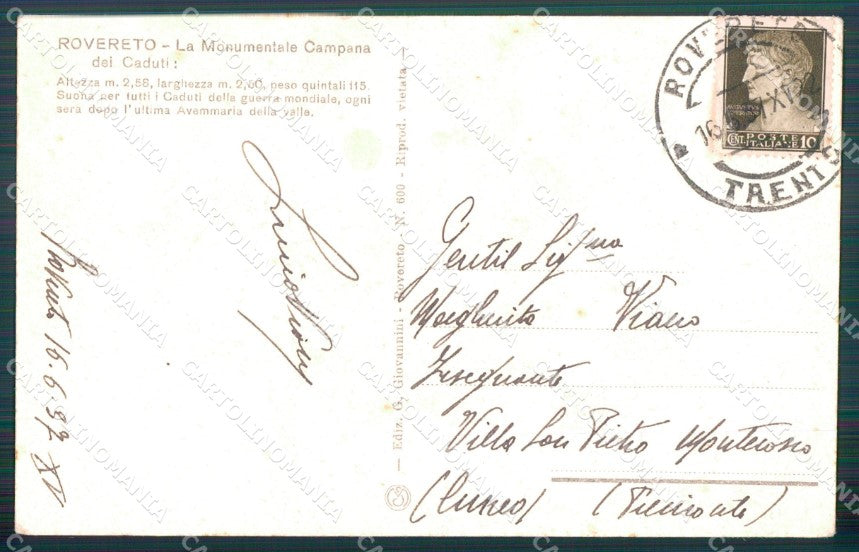 ROVERETO - La Monumentale Campana
dei Caduti:
Altezza m. 2,58, larghezza m. 2,60, peso quintali 115.
Suona per tutti i Caduti della guerra mondiale, ogni
sera dopo l'ultima Avemmaria della valle.
16. 6 37 XV
— Ediz. G. Giovannini - Rovereto - N. 600 - Riprod. vietata —
ROVERETO
TRENTO
POSTE
ITALIANE
CENT. 10
Gentil Sig.na
Margherita Viano
Insegnante
Villa San Pietro Monterosso
(Cuneo) (Piemonte)
CARTOLINOMANIA